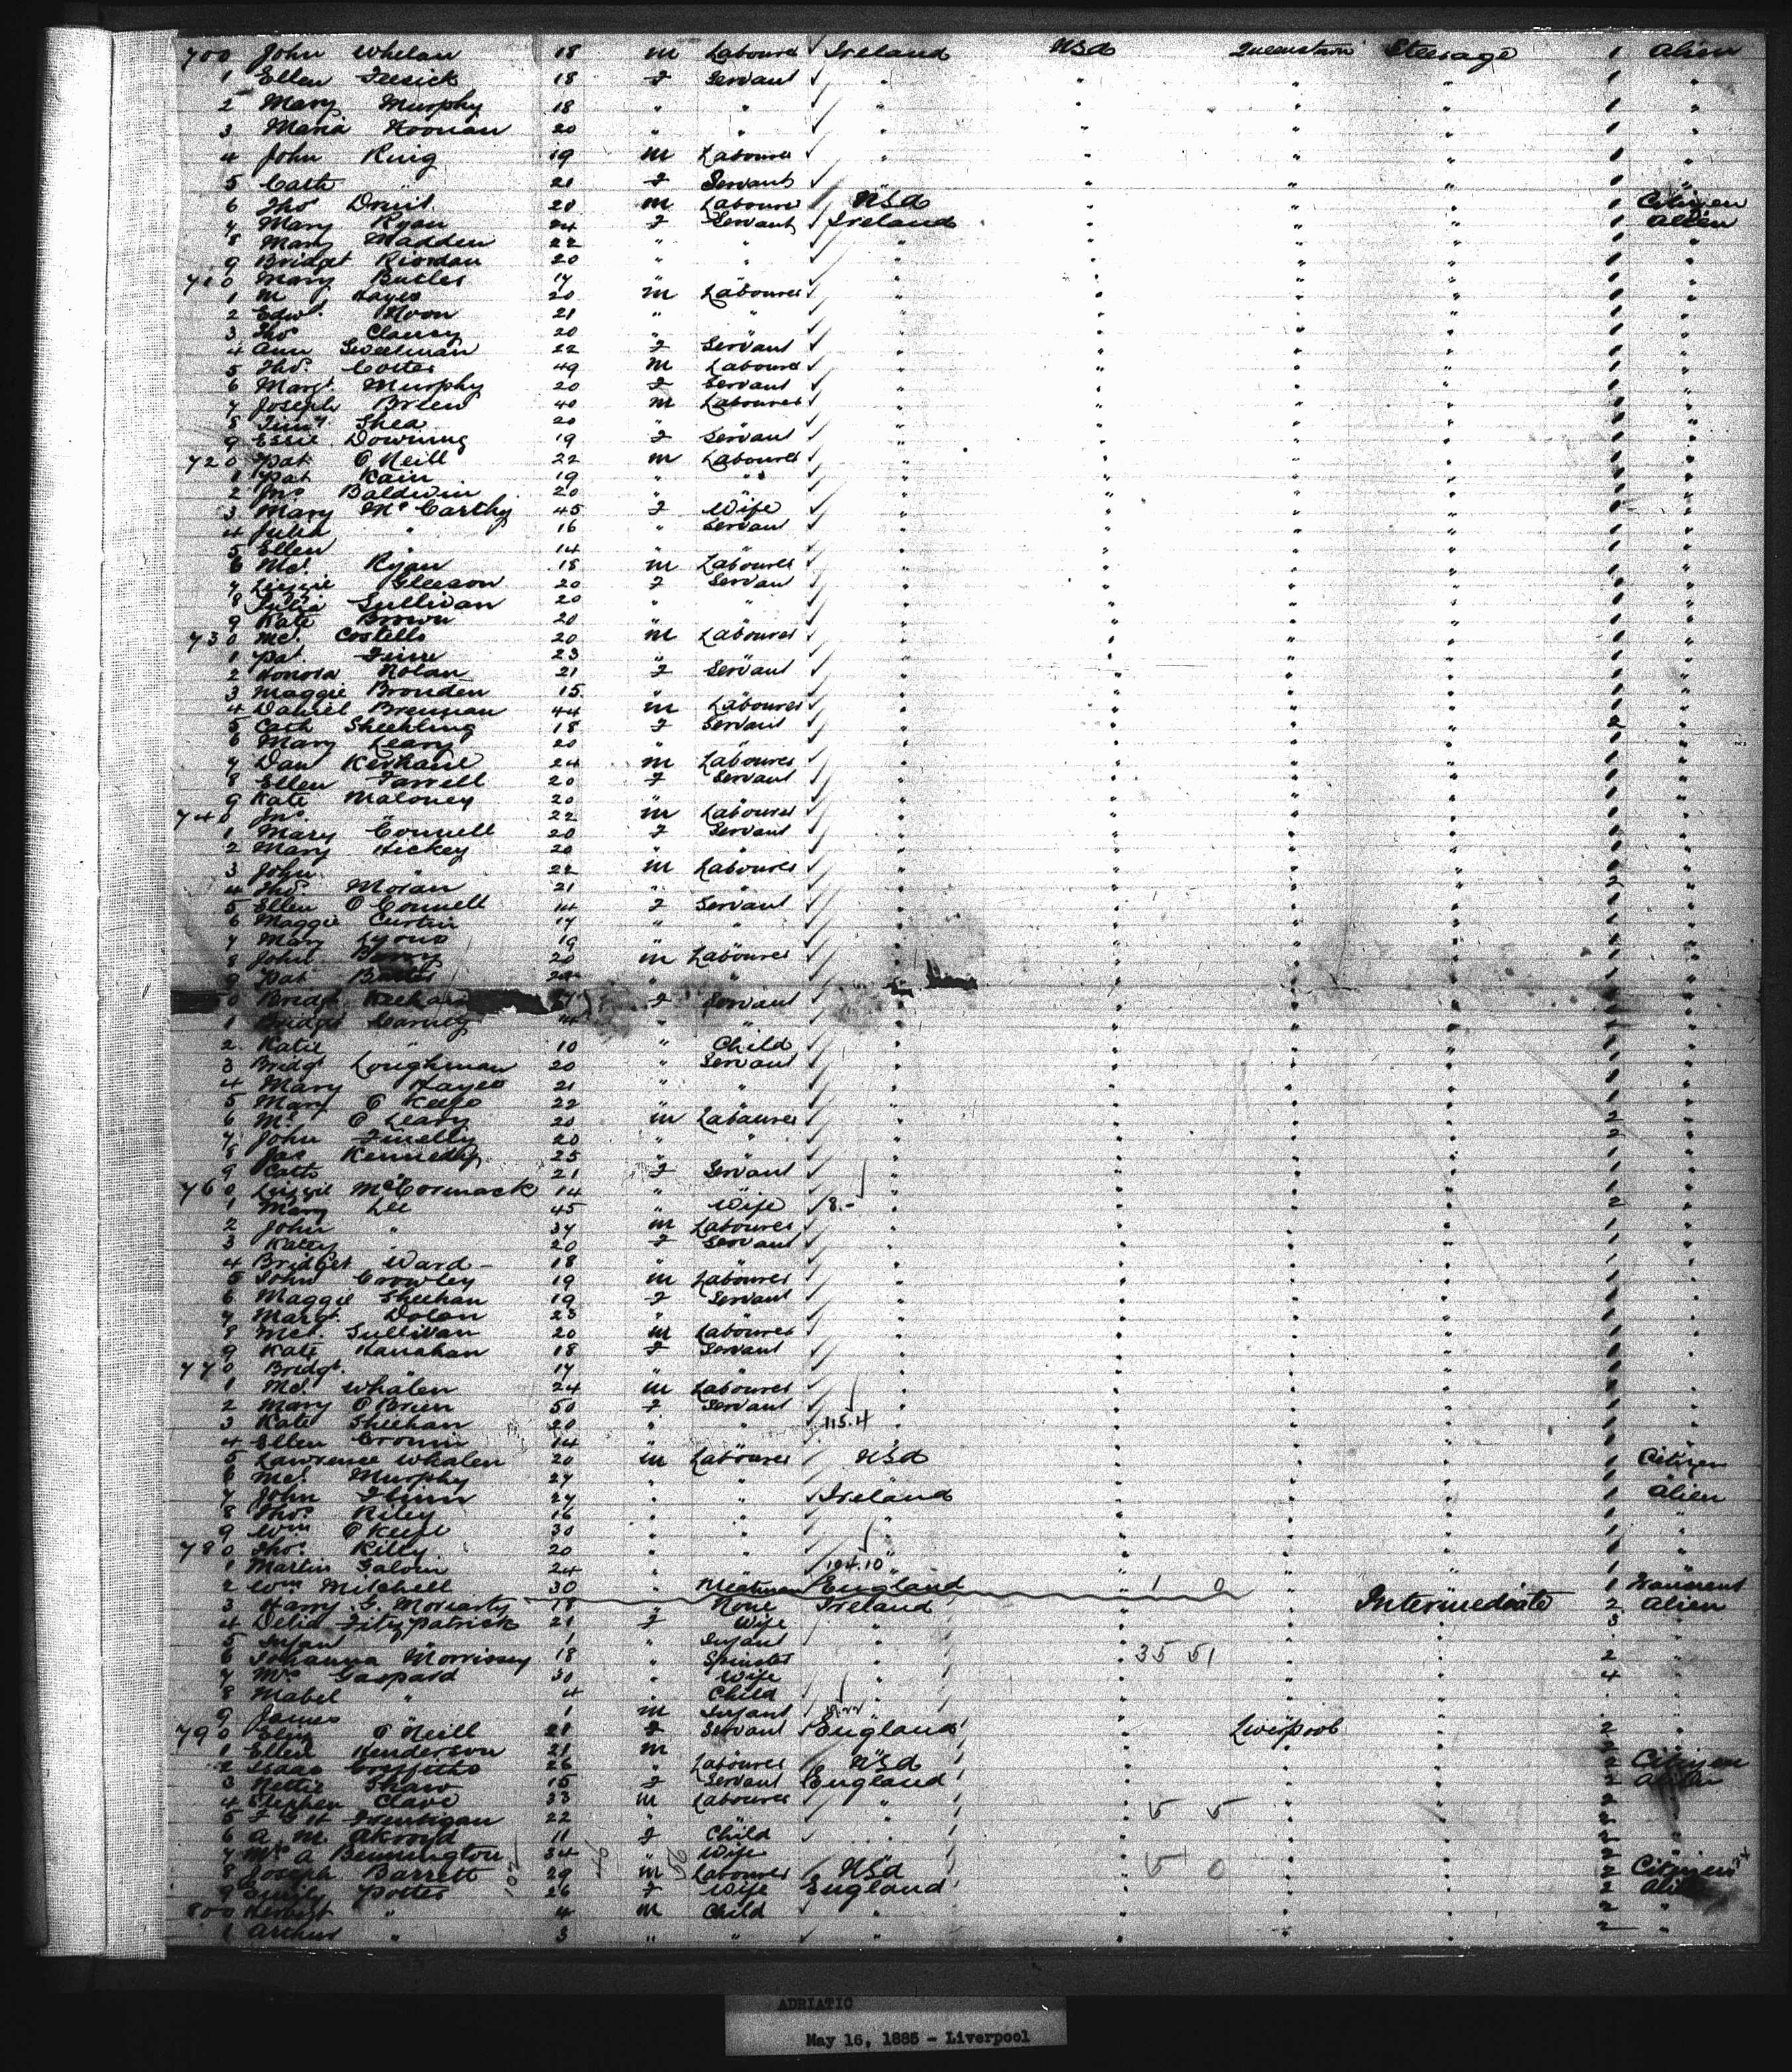 700 John Whelan 18 m Labourer Ireland USA Queenstown Steerage 1 Alien
1 Ellen 18 f Servant " " " " 1 "
2 Mary Murphy 18 " " " " " " 1 "
3 Maria Noonan 20 " " " " " " 1 "
4 John King 19 m Labourer " " " " 1 "
5 Cath " 21 f Servant " " " " 1 "
6 Thos 20 m Labourer USA " " " 1 Citizen
7 Mary Ryan 24 f Servant Ireland " " " 1 Alien
8 Mary Madden 22 " " " " " " 1 "
9 Bridget Riordan 20 " " " " " " 1 "
710 Mary Butler 17 " " " " " " 1 "
1 M Hayes 20 m Labourer " " " " 1 "
2 Edwd. Moon 21 " " " " " " 1 "
3 Thos Clancy 20 " " " " " " 1 "
4 Ann Sweetman 22 f Servant " " " " 1 "
5 Thos. Coster 49 m Labourer " " " " 1 "
6 Margt. Murphy 20 f Servant " " " " 1 "
7 Joseph Breen 40 m Labourer " " " " 1 "
8 Timy Shea 20 " " " " " " 1 "
9 Essie Downing 19 f Servant " " " " 1 "
720 Pat O'Neill 22 m Labourer " " " " 1 "
1 Pat Kain 19 " " " " " " 1 "
2 Jno Baldwin 20 " " " " " " 1 "
3 Mary McCarthy 45 f Wife " " " " 1 "
4 Julia " 16 " Servant " " " " 1 "
5 Ellen " 14 " " " " " " 1 "
6 Ml. Ryan 18 m Labourer " " " " 1 "
7 Lizzie Gleeson 20 f Servan " " " " 1 "
8 Julia Sullivan 20 " " " " " " 1 "
9 Kate Brown 20 " " " " " " 1 "
730 Ml. Costello 20 m Labourer " " " " 1 "
1 Pat. 23 " " " " " " 1 "
2 Honora Nolan 21 f Servant " " " " 1 "
3 Maggie 15 " " " " " " 1 "
4 Daniel Brennan 44 m Labourer " " " " 1 "
5 Cath 18 f Servant " " " " 2 "
6 Mary Leary 20 " " " " " " 1 "
7 Dan 24 m Labourer " " " " 1 "
8 Ellen Farrell 20 f Servant " " " " 1 "
9 Kate Maloney 20 " " " " " " 1 "
740 Jno. " 22 m Labourer " " " " 1 "
1 Mary Connell 20 f Servant " " " " 1 "
2 Mary Hickey 20 " " " " " " 1 "
3 John " 22 m Labourer " " " " 1 "
4 Thos Moran 21 " " " " " " 2 "
5 Ellen O'Connell 14 f Servant " " " " 1 "
6 Maggie Curtin 17 " " " " " " 1 "
7 Mary Lyons 19 " " " " " " 1 "
8 John 20 m Labourer " " " " 1 "
9 Pat " " " " " " 1 "
0 Bridgt f Servant " " " " 1 "
1 Bridget Carney " " " " " " 1 "
2 Katie " 10 " Child " " " " 1 "
3 Bridgt Loughman 20 " Servant " " " " 1 "
4 Mary Hayes 21 " " " " " " 1 "
5 Mary O'Keefe 22 " " " " " " 1 "
6 Ml. O'Leary 20 m Labourer " " " " 2 "
7 John 20 " " " " " " 2 "
8 Jas Kennedy 25 " " " " " " 1 "
9 Cath " 21 f Servant " " " " 1 "
760 Lizzie McCormack 14 " " " " " " 1 "
1 Mary Lee 45 " Wife 8.- " " " 2 "
2 John " 37 m Labourer " " " " 1 "
3 Katey " 20 f Servant " " " " 1 "
4 Bridget Ward 18 " " " " " " 1 "
5 John Crowley 19 m Labourer " " " " 1 "
6 Maggie Sheehan 19 f Servant " " " " 1 "
7 Margt. Dolan 23 " " " " " " 1 "
8 Ml. Sullivan 20 m Labourer " " " " 1 "
9 Kate Hanahan 18 f Servant " " " " 1 "
770 Bridgt. " 17 " " " " " " 1 "
1 Ml. Whalen 24 m Labourer " " " " 1 "
2 Mary O'Brien 50 f Servant " " " " 1 "
3 Kate Sheehan 20 " " 115.4 " " " 1 "
4 Ellen Cronin 14 " " " " " " 1 "
5 Lawrence Whalen 20 m Labourer USA " " " 1 Citizen
6 Ml. Murphy 27 " " " " " " 1 "
7 John Flinn 27 " " Ireland " " " 1 Alien
8 Thos. Riley 16 " " " " " " 1 "
9 Wm O'Keefe 30 " " " " " " 1 "
780 Thos. 20 " " " " " " 1 "
1 Martin Galvin 24 " " 104.10 " " " 1 "
2 Wm Mitchell 30 " England " 1 0 " " 1
3 Harry G. Moriarty 18 " None Ireland " " Intermediate 2 Alien
4 Delia Fitzpatrick 21 f Wife " " " " 3 "
5 Infan " 1 " Infant " " " " "
6 Johanna Morrissey 18 " Spinster " 35 51 " " 2 "
7 Mrs Gaspard 30 " Wife " " " " 4 "
8 Mabel " 4 " Child " " " " "
9 James " 1 m Infant " " " " "
790 Eliza O'Neill 21 f Servant England " Liverpool " 2 "
1 Ellen Henderson 21 m " " " " 2 "
2 Isaac Griffiths 26 " Labourer USA " " " 2 Citizen
3 Nettie Shaw 15 f Servant England " " " 2 Alien
4 Stephen Clave 33 m Labourer " 5 5 " " 2 "
5 22 " " " " " " 2 "
6 A. M. Akroyd 11 f Child " " " " 2 "
7 Mrs A Bennington 34 " Wife " " " " 2 "
8 Joseph Barrett 29 m Labourer USA 5 0 " " 2 Citizen
9 Emily Potter 26 f Wife England " " " 2 Alien
800 Herbert " 4 m Child " " " " 2 "
1 Arthur " 3 " " " " " " 2 "
ADRIATIC
May 16, 1885 - Liverpool